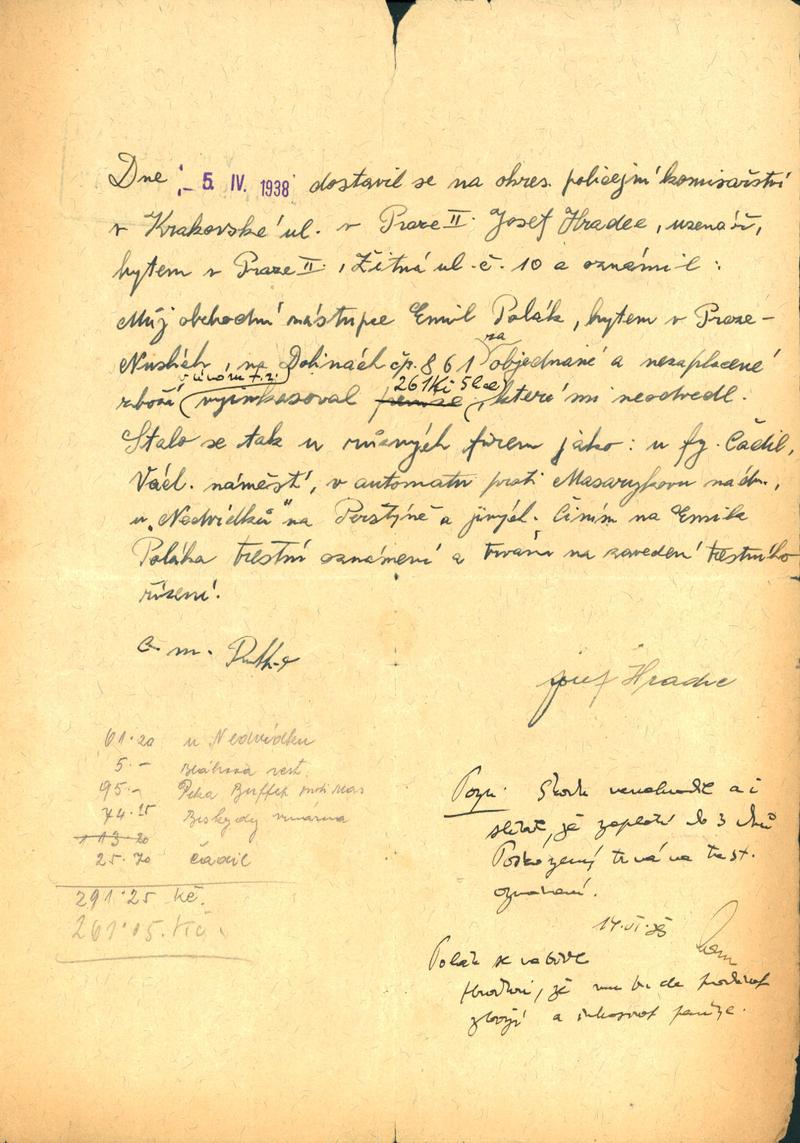 Dne - 5. IV. 1938 dostavil se na okres. policejní komisařství
v Krakovské ul. v Praze II. Josef Hradec, uzenář,
bytem v Praze II., Žitná ul. č. 10 a oznámil:
Můj obchodní zástupce Emil Polák, bytem v Praze-
Nuslích, na Dolinách čp. 861 za objednané a nezaplacené
zboží vyinkasoval peníze 261 Kč, které mi neodvedl.
Stalo se tak u různých firem jako: u fy. Čadil,
Václ. náměstí, v automatu proti Masarykovu nádr.,
u "Nedvídků" na Perštýně a jiných. Činím na Emila
Poláka trestní oznámení a trvám na zavedení trestního
řízení.
Josef Hradec
61.20 u Nedvídků
5.-
95.- Buffet proti Mas
74.25 Beskydy
113.20
25.70 Čadil
291.25 Kč.
261.05 Kč.
Pozn. Škodu nenahradil a i
slíbil, že zaplatí do 3 dnů
Poškozený trvá na trest.
oznámení.
14.VI.38
Polák se
že mu bude prodávat
zboží a inkasovat peníze.